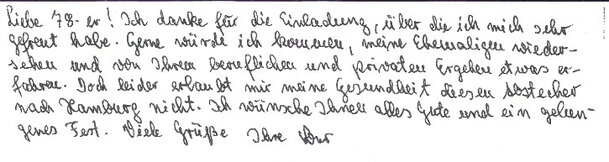 Liebe 78-er! Ich danke für die Einladung, über die ich mich sehr
gefreut habe. Gerne würde ich kommen, meine Ehemaligen wieder-
sehen und von Ihrem beruflichen und privaten Ergehen etwas er-
fahren. Doch leider erlaubt mir meine Gesundheit diesen Abstecher
nach Hamburg nicht. Ich wünsche Ihnen alles Gute und ein gelun-
genes Fest. Viele Grüße Ihre